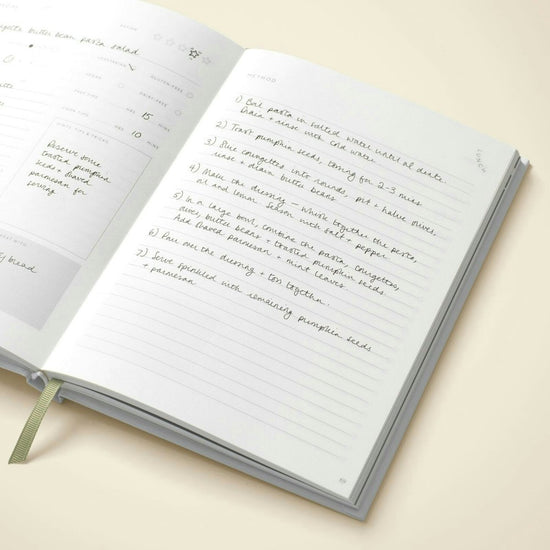 courgette butter bean pasta salad
VEGETARIAN
GLUTEN FREE
VEGAN
DAIRY FREE
PREP TIME HRS 15 MINS
COOK TIME HRS 10 MINS
HINTS, TIPS & TRICKS
Reserve some
toasted pumpkin
seeds + shaved
parmesan for
serving
bread
METHOD
LUNCH
1) Boil pasta in salted water until al dente.
Drain + rinse with cold water.
2) Toast pumpkin seeds, tossing for 2-3 mins
3) Slice courgettes into rounds, pit + halve olives.
rinse + drain butter beans
4) Make the dressing – whisk together the pesto,
oil and lemon. Season with salt + pepper
5) In a large bowl, combine the pasta, courgettes,
olives, butter beans + toasted pumpkin seeds.
Add shaved parmesan + mint leaves
6) Pour over the dressing + toss together.
7) Serve sprinkled with remaining pumpkin seeds
+ parmesan